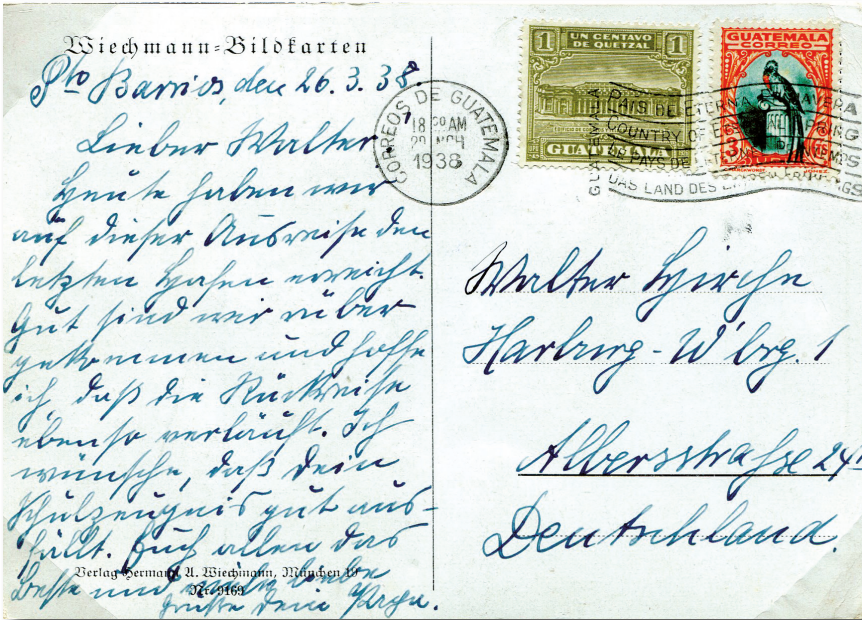 Wiechmann-Bildkarten
Pto Barrios, den 26.3.38.
Lieber Walter!
Heute haben wir
auf dieser Ausreise den
letzten Hafen erreicht.
Gut sind wir rüber
gekommen und hoffe
ich, daß die Rückreise
ebenso verläuft. Ich
wünsche, daß Dein
Schulzeugnis gut aus-
fällt. Euch allen das
Beste und viele liebe
Grüße Dein Papa.
Verlag Hermann A. Wiechmann, München 19
Nr. 9169
CORREOS DE GUATEMALA
AM
1938
1 UN CENTAVO DE QUETZAL 1
GUATEMALA
GUATEMALA
CORREO
3
GUATEMALA
PAIS DE ETERNA PRIMAVERA
COUNTRY OF
PAYS DE
DAS LAND DES
Walter Hirche
Harburg-W'brg. 1
Albersstraße 24
Deutschland.